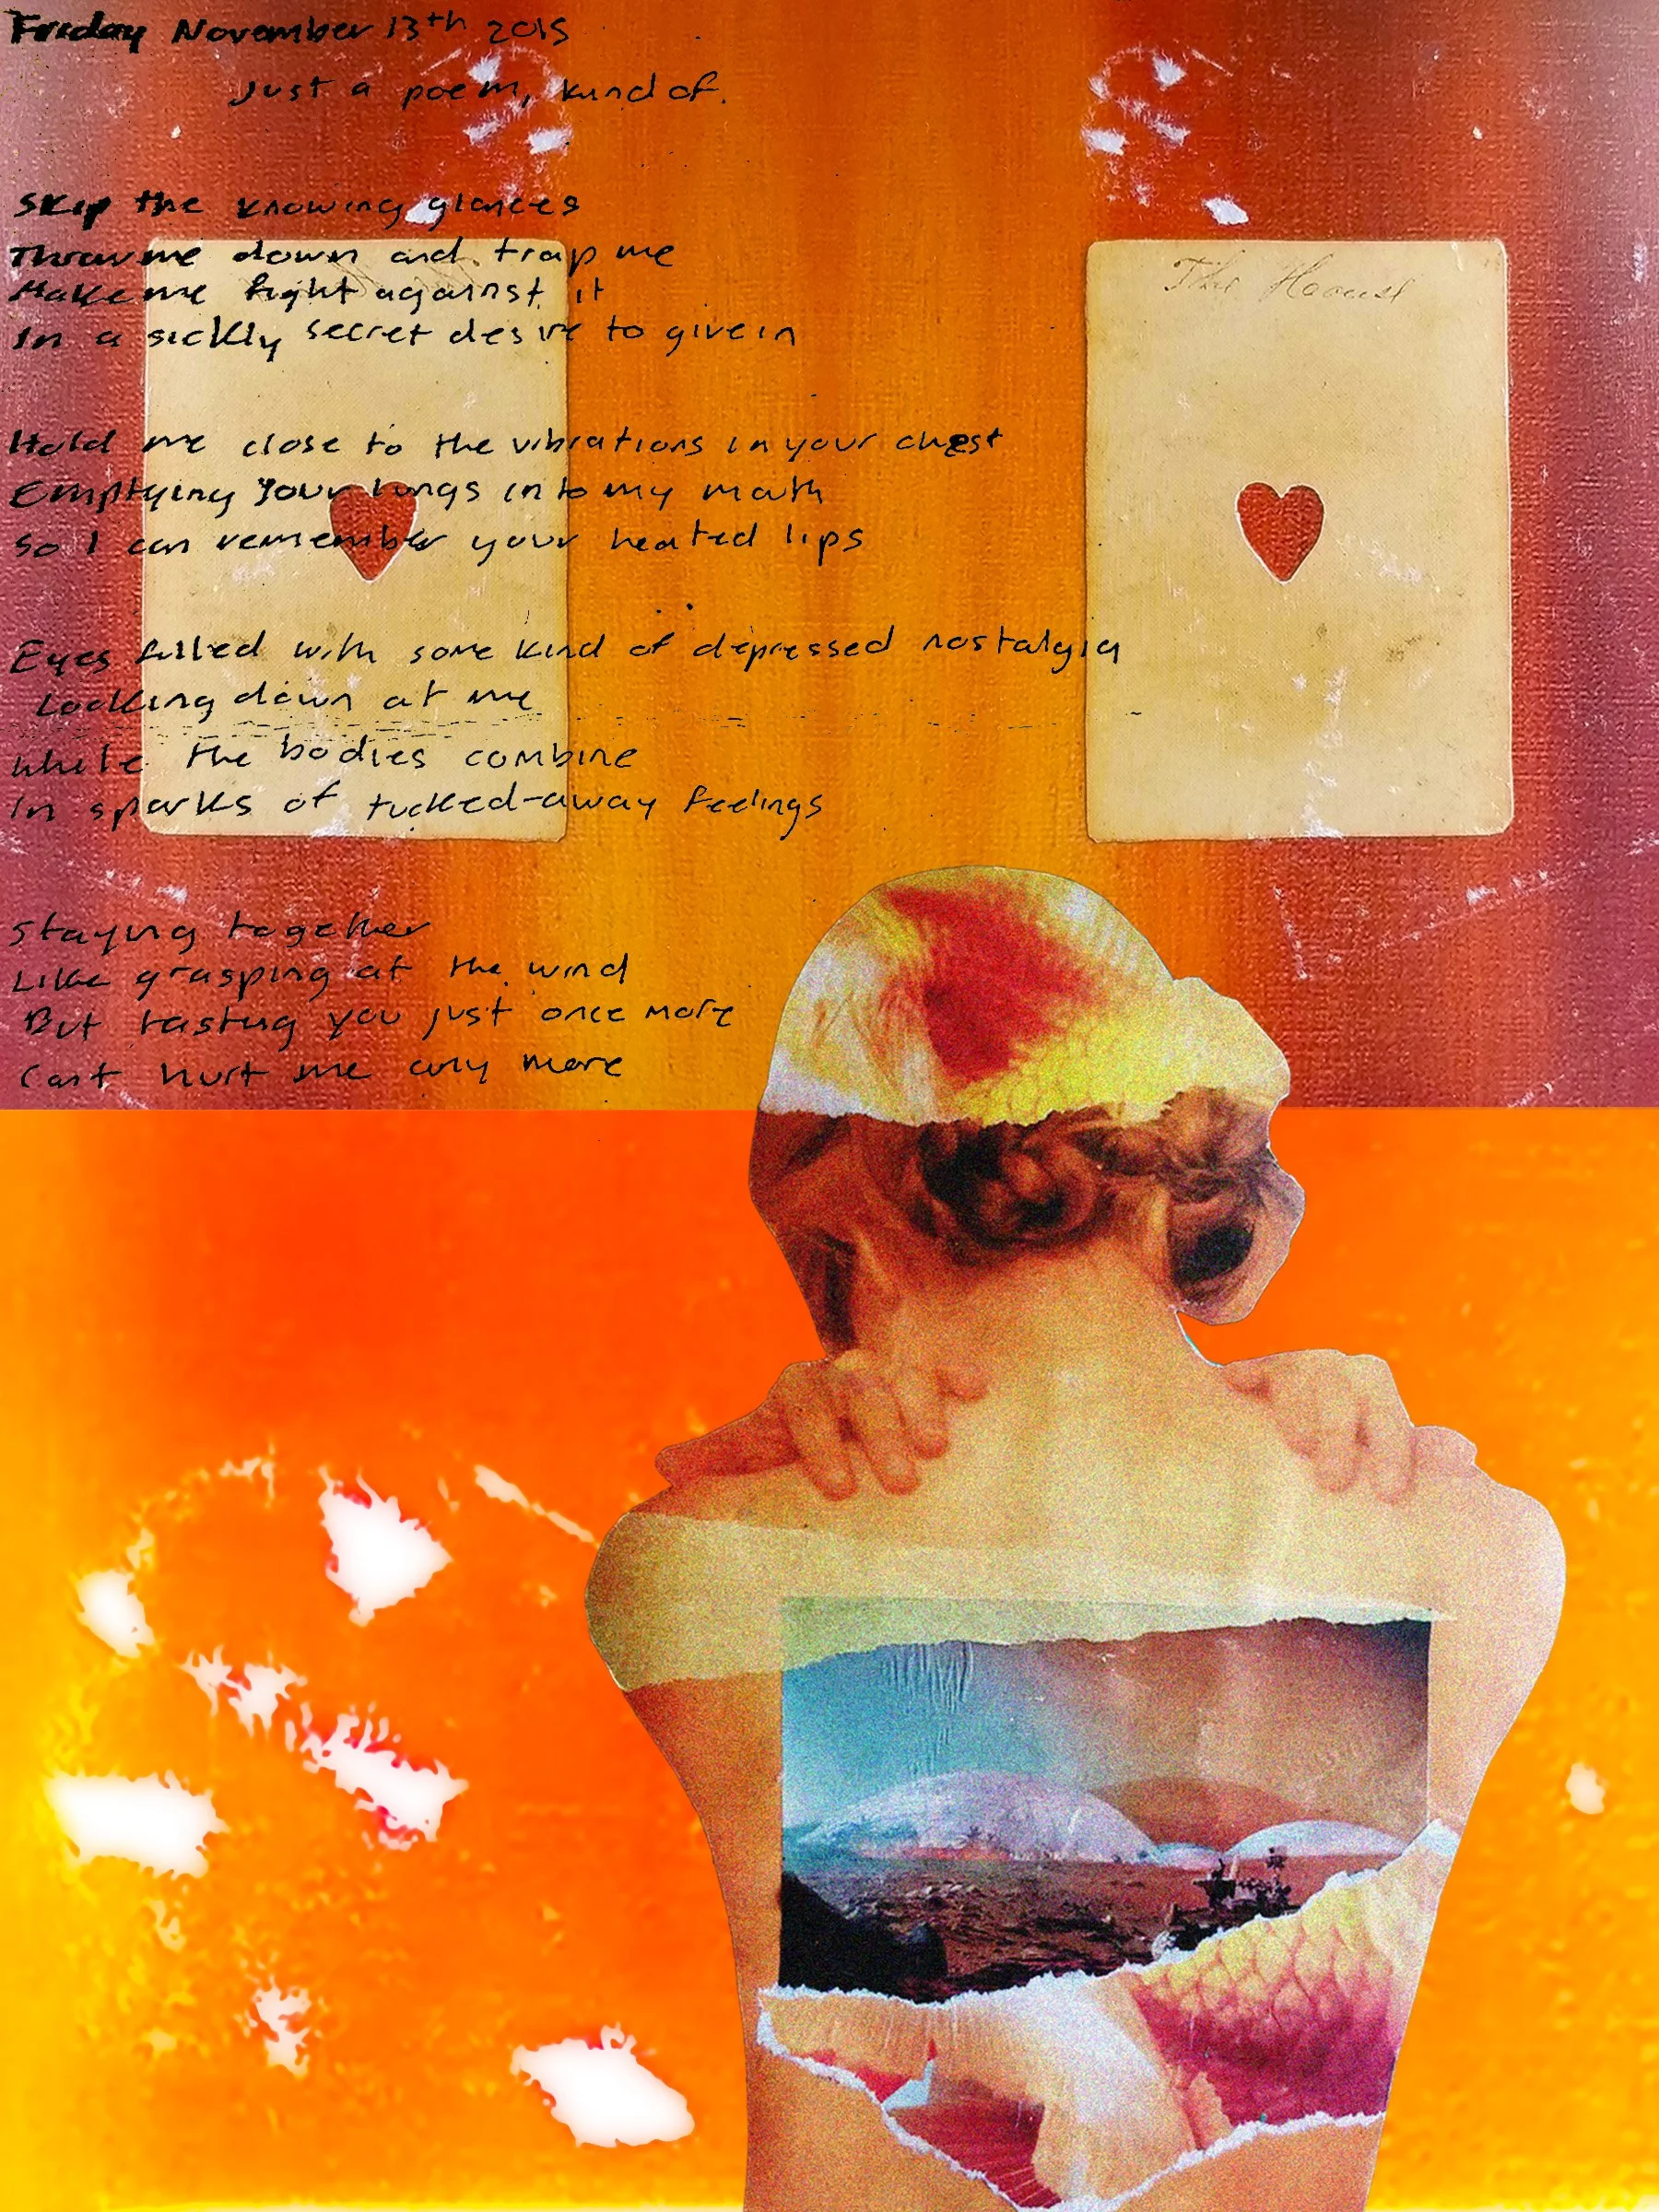 Friday November 13th 2015
Just a poem, kind of.
Skip the knowing glances
Throw me down and trap me
Make me fight against it
In a sickly secret desire to give in
Hold me close to the vibrations in your chest
Emptying your lungs into my mouth
So I can remember your heated lips
Eyes filled with some kind of depressed nostalgia
Looking down at me
While the bodies combine
In sparks of tucked-away feelings
Staying together
Like grasping at the wind
But tasting you just once more
Cant hurt me any more
The